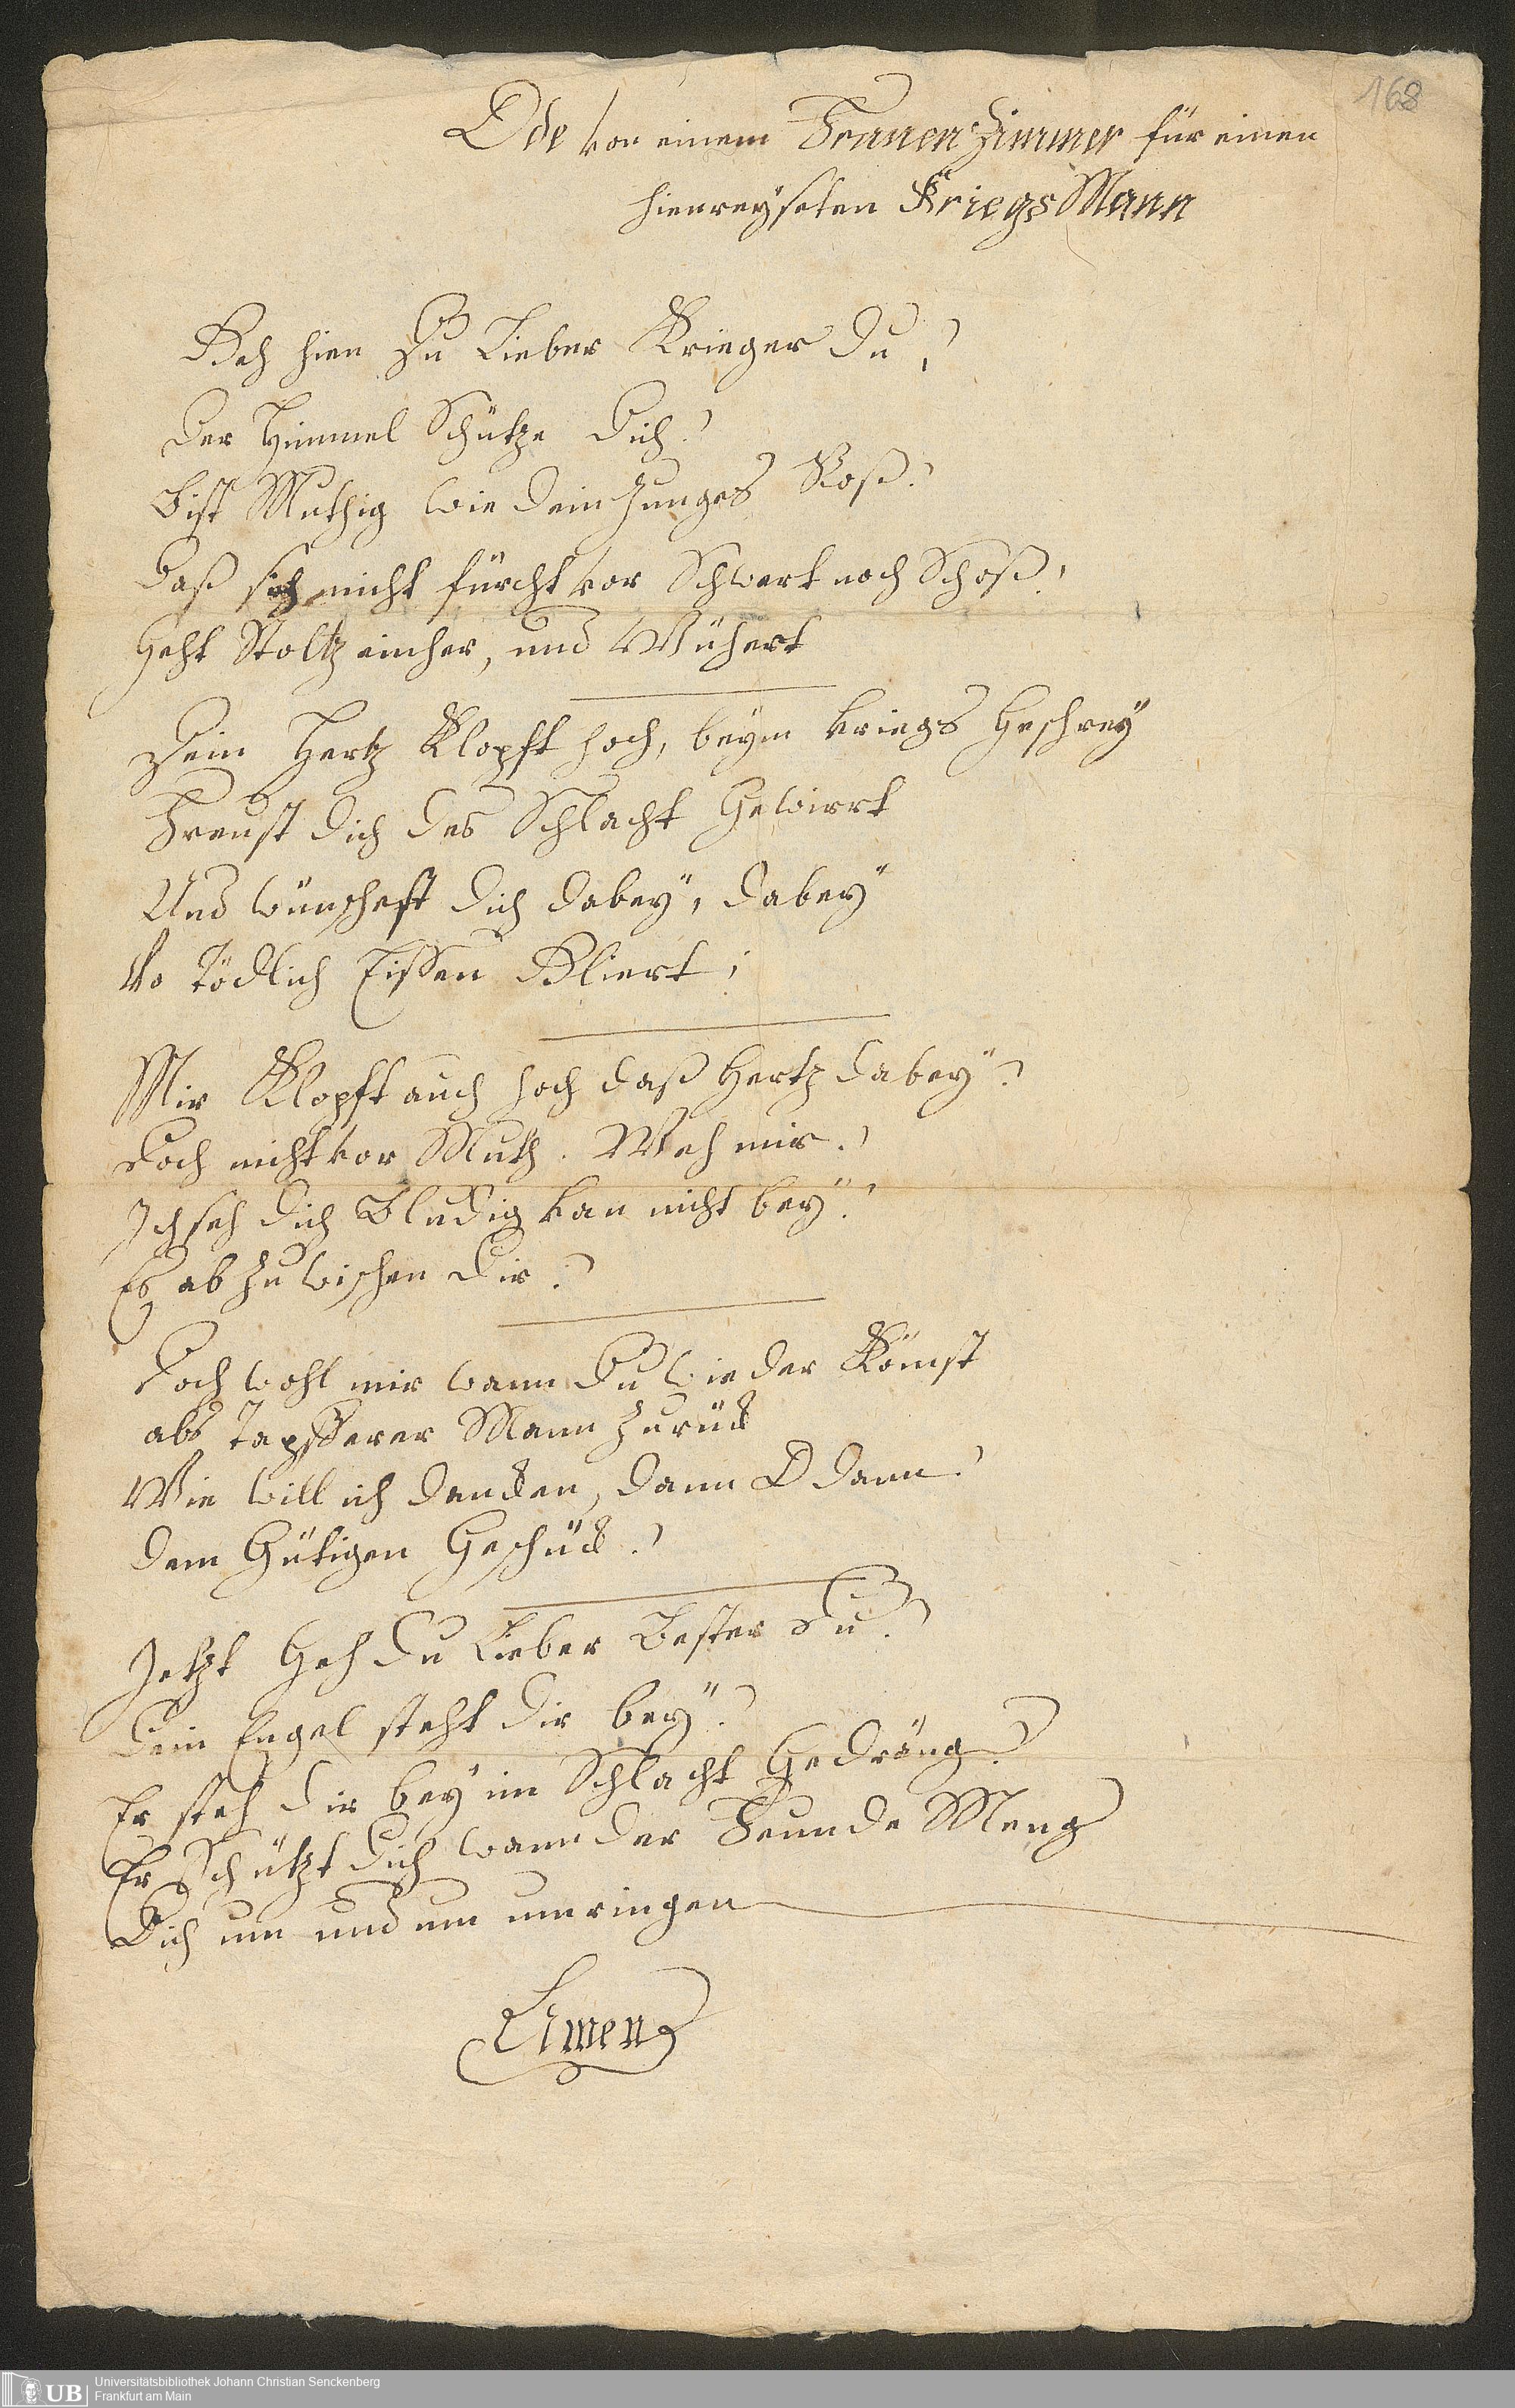 168
Ode von einem Frauen Zimmer für einen
hienreyseten Kriegs Mann
Geh hien Du Lieber Krieger Du,
Der Himmel Schütze Dich!
Bist Muthig wie dein Junges Roß!
Daß sich nicht fürcht vor Schwert noch Schoß,
Geht Stoltz eincher, und Wühert
Dein Hertz Klopft hoch, beym kriegs Geschrey
Freust dich des Schlacht Gewirrt
Und wünschest dich dabey, dabey
Wo Tödlich Eissen Kliert,
Mir Klopft auch hoch daß Hertz dabey!
Doch nicht vor Muth. Weh mir!
Ich seh dich Bludig kan nicht bey!
Es ab zu wischen Dir!
Doch wohl mir wann Du wieder Kömst
als Tapfferer Mann Zurück
Wie will ich dancken, dann O dann!
dem Gütigen Geschück!
Jetzt Geh Du Lieber Bester Du!
Dein Engel steht dir bey!
Er steh dir bey im Schlacht Gedräng!
Er Schützt dich wann der Feunde Meng
Dich um und um umringen
Amen
UB
Universitätsbibliothek Johann Christian Senckenberg
Frankfurt am Main